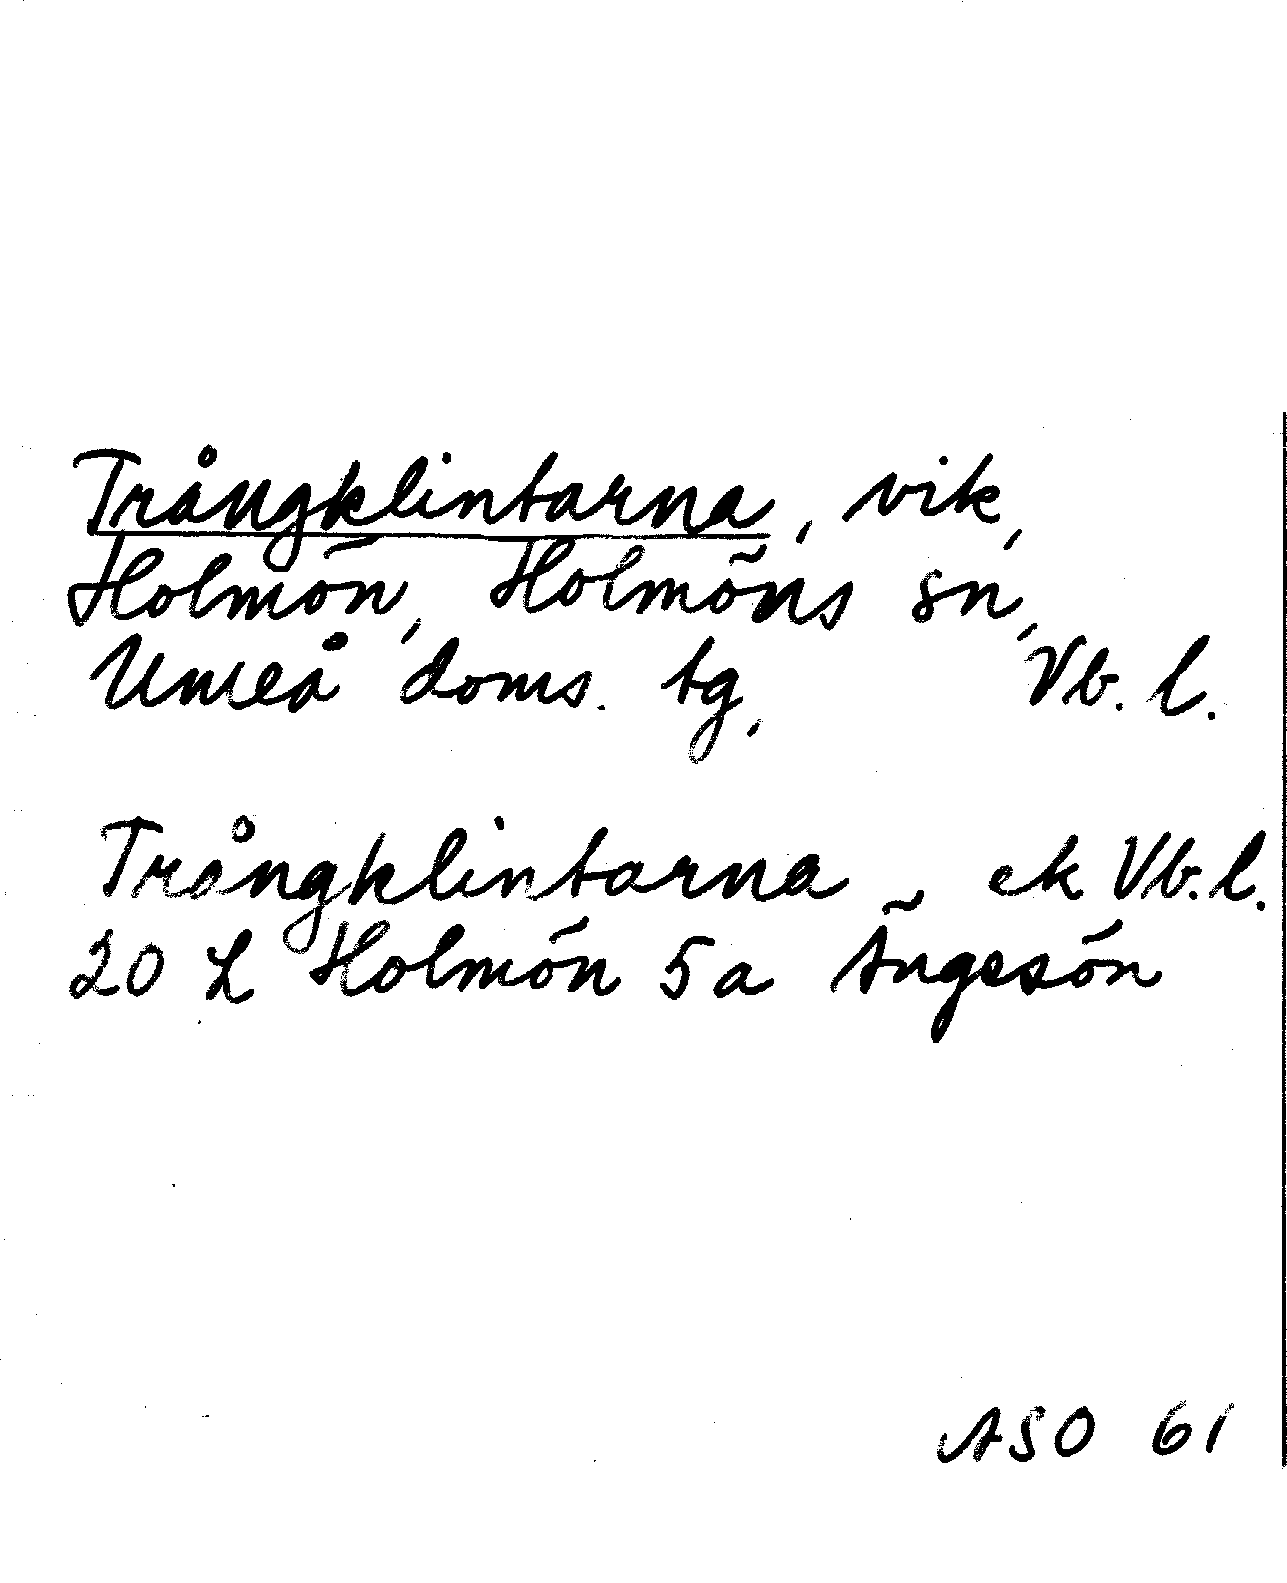 Trångklintarna, vik,
Holmön, Holmöns sn,
Umeå doms. tg, Vb. l.
Trångklintarna, ek Vb. l.
20 L Holmön 5 a Ängesön
ASO 61